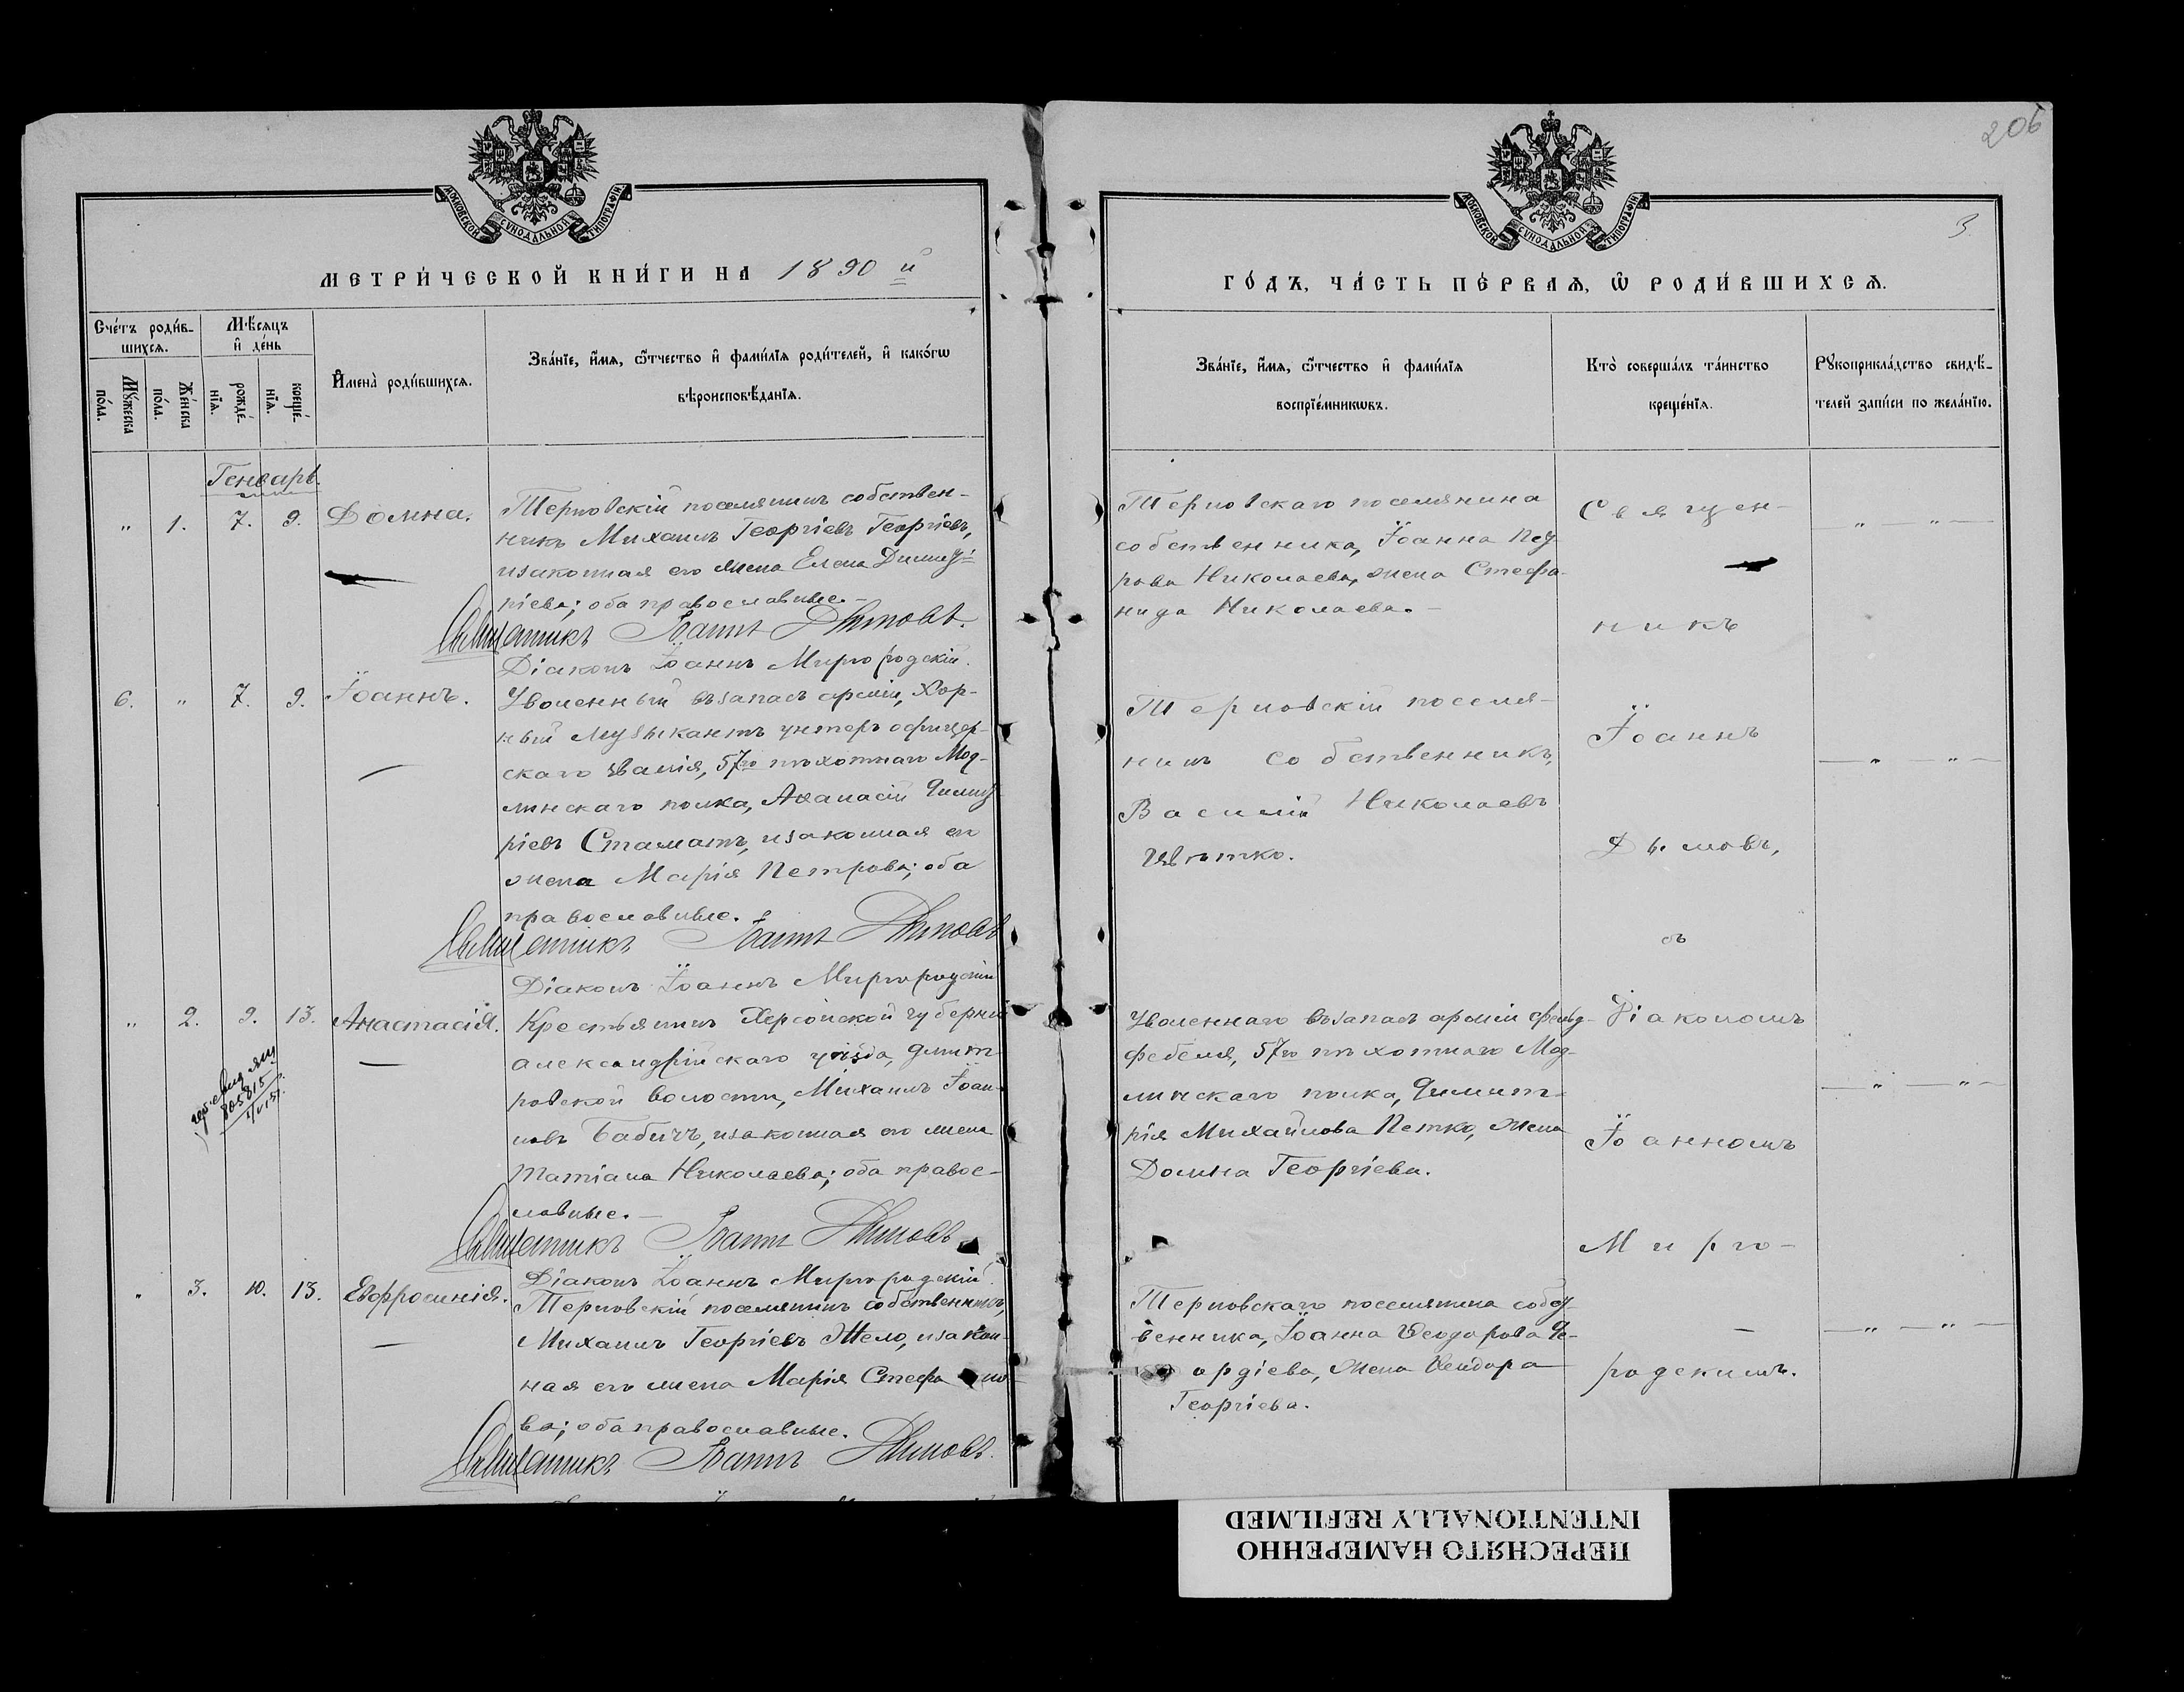 206
3.
МОСКОВСКОЙ СѴНОДАЛЬНОЙ ТИПОГРАФІИ
МОСКОВСКОЙ СѴНОДАЛЬНОЙ ТИПОГРАФІИ
МЕТРИ́ЧЕСКОЙ КНИ́ГИ НА 1890 й
ГО́ДЪ, ЧА́СТЬ ПЕ́РВАѦ, Ѡ҆ РОДИ́ВШИХСѦ.
Сче́тъ роди́в-
шихсѧ.
Мꙋ́жеска
по́ла.
Же́нска
по́ла.
Мѣ́сѧцъ
и҆ де́нь
рожде́-
нїѧ.
креще́-
нїѧ.
И҆мена̀ роди́вшихсѧ.
Зва́нїе, и҆́мѧ, ѻ҆́тчество и҆ фами́лїѧ роди́телей, и҆ како́гѡ
вѣроисповѣ́данїѧ.
Зва́нїе, и҆́мѧ, ѻ҆́тчество и҆ фами́лїѧ
воспрїе́мникѡвъ.
Кто̀ соверша́лъ та́инство
креще́нїѧ.
Рꙋкоприкла́дство свидѣ́-
телей за́писи по жела́нїю.
Генварь.
" 1. 7. 9. Домна.
Терновскій поселянинъ собствен-
никъ Михаилъ Георгіевъ Георгіевъ,
и законная его жена Елена Димит-
ріева; оба православные.-
Священникъ Іоаннъ Дымовъ.
Діаконъ Іоаннъ Миргородскій.
Терновскаго поселянина
собственника, Іоанна Пет
рова Николаева, жена Стефа-
нида Николаева.-
6. " 7. 9. Іоаннъ.
Уволенный въ запасъ арміи, Хор-
ный музыкантъ унтеръ офицер-
скаго званія, 57го пѣхотнаго Мод-
линскаго полка, Аѳанасій Димит
ріевъ Стаматъ, и законная его
жена Марія Петрова; оба
православные.
Священникъ Іоаннъ Дымовъ
Діаконъ Іоаннъ Миргородскій
Терновскій поселя-
нинъ собственникъ,
Василій Николаевъ
Цвѣтко.
" 2. 9. 13. Анастасія.
805815
Крестьянинъ Херсонской губерніи
Александрійскаго уѣзда, Дмит-
ровской волости, Михаилъ Іоан-
новъ Бабичъ, и законная его жена
Татіана Николаева; оба правос-
лавные.-
Священникъ Іоаннъ Дымовъ
Діаконъ Іоаннъ Миргородскій.
Уволеннаго въ запасъ арміи фельд-
фебеля, 57го пѣхотнаго Мод-
линскаго полка, Димит-
рія Михайлова Петко, жена
Домна Георгіева.
" 3. 10. 13. Евфросинія.
Терновскій поселянинъ собственникъ,
Михаилъ Георгіевъ Жело, и закон-
ная его жена Марія Стефано-
ва; оба православные.
Священникъ Іоаннъ Дымовъ.
Терновскаго поселянина собст
венника, Іоанна Ѳеодорова
Георгіева.
Священ-
никъ
Іоаннъ
Дымовъ,
съ
Діакономъ
Іоанномъ
Мирго-
родскимъ.
ПЕРЕСНЯТО НАМЕРЕННО
INTENTIONALLY REFILMED